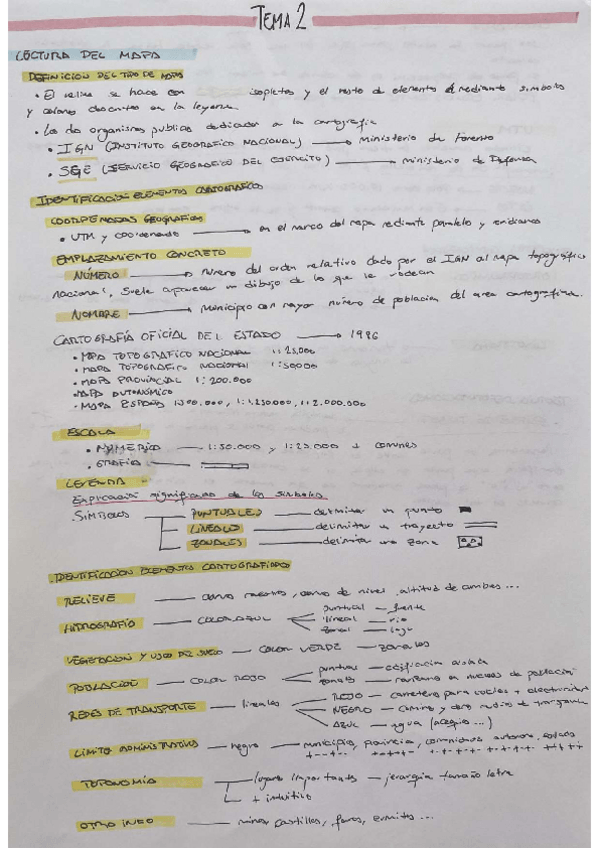 TEMA 2
LECTURA DEL MAPA
DEFINICION DEL TIPO DE MAPA
• El relieve se hace con isopletas y el resto de elementos mediante simbolos
y colores descritos en la leyenda
• Los dos organismos publicos dedicados a la cartografia
• IGN (INSTITUTO GEOGRAFICO NACIONAL) → Ministerio de Fomento
• SGE (SERVICIO GEOGRAFICO DEL EJERCITO) → Ministerio de Defensa
IDENTIFICACION ELEMENTOS CARTOGRAFICOS
COORDENADAS GEOGRAFICAS
• UTM y coordenadas → en el marco del mapa mediante paralelo y
EMPLAZAMIENTO CONCRETO
NÚMERO → número del orden relativo dado por el IGN al mapa topográfico
nacional, suele aparecer un dibujo de lo que le rodean
NOMBRE → municipio con mayor número de poblacion del area
CARTOGRAFÍA OFICIAL DEL ESTADO → 1986
• MAPA TOPOGRAFICO NACIONAL 1:25,000
• MAPA TOPOGRAFICO NACIONAL 1:50,000
• MAPA PROVINCIAL 1:200.000
• MAPA AUTONÓMICO
• MAPA ESPAÑA 1:1.250.000, 1:2.000.000
ESCALA
• NUMERICA — 1:50.000 y 1:25.000 + comunes
• GRAFICA —
LEYENDA
Explicacion significado de los simbolos
SIMBOLOS PUNTUALES — delimitar un punto
LINEALES — delimitar un trayecto
ZONALES — delimita una zona
IDENTIFICACION ELEMENTOS CARTOGRAFIADOS
RELIEVE — curvas maestras, curvas de nivel, altitud de cumbres ...
HIDROGRAFIA — COLOR AZUL puntual — fuente
lineal — rio
zonal — lago
VEGETACION Y USOS DEL SUELO — COLOR VERDE — zonales
POBLACION — COLOR ROJO puntual — edificacion aislada
zonales — nucleos de población
REDES DE TRANSPORTE — lineales ROJO — carreteras para coches + electricidad
NEGRO — camino y otro medio de transporte
AZUL — agua (acequia ...)
LIMITE ADMINISTRATIVOS — negro — municipio, provincia, comunidad autonoma, estado
TOPONIMIA — lugares importantes — jerarquia tamaño letra
+ intuitivo
OTRO INFO — minas, castillos, faros, ermitas ...